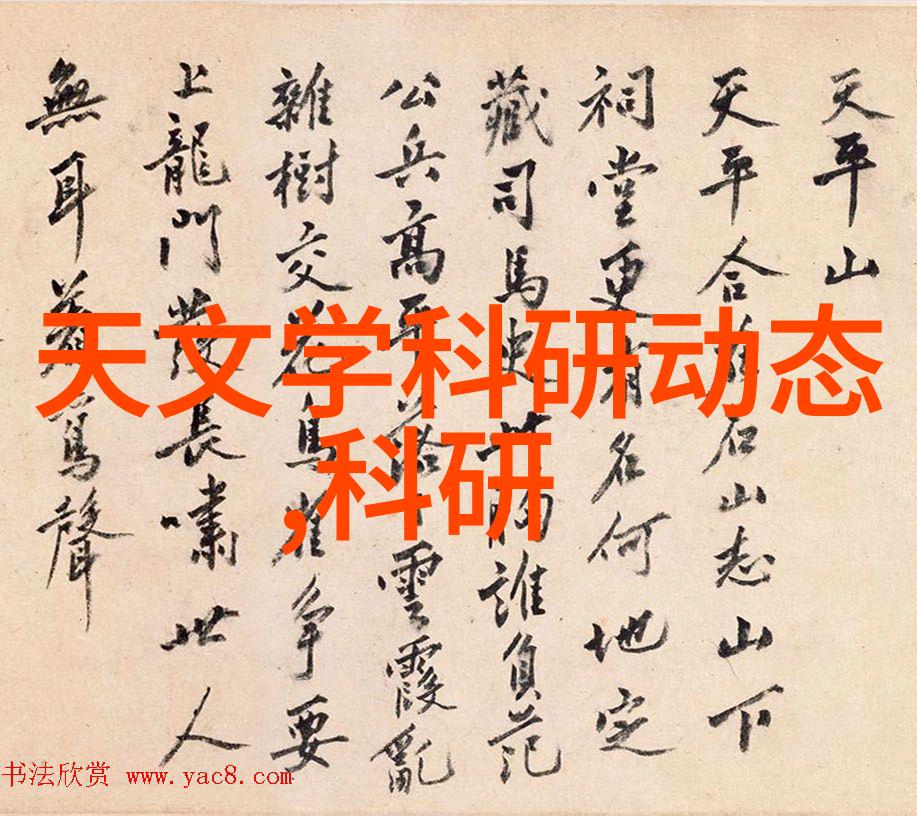 天平山
天平合石山志山下
祠堂更有名何地定
藏司馬史胸誰負范
公兵高平落下雲霞亂
雜樹交花鳥雀爭要
上龍門發長嘯世人
無耳聲
天文学科研动态
,科研
书法欣赏 www.yac8.com